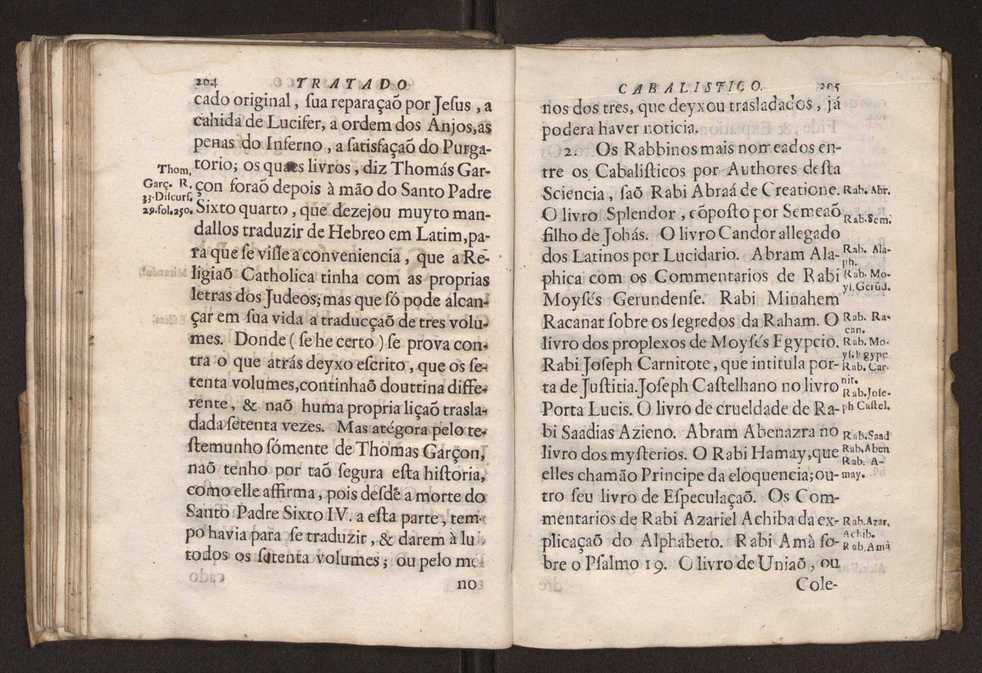 204 TRATADO
cado original, sua reparaçaõ por Jesus, a
cahida de Lucifer, a ordem dos Anjos, as
penas do Inferno, a satisfaçaõ do Purga-
torio; os quaes livros, diz Thomás Gar-
çon foraõ depois à mão do Santo Padre
Sixto quarto, que dezejou muyto man-
dallos traduzir de Hebreo em Latim, pa-
ra que se visse a conveniencia, que a Re-
ligiaõ Catholica tinha com as proprias
letras dos Judeos; mas que só pode alcan-
çar em sua vida a traducçaõ de tres volu-
mes. Donde (se he certo) se prova con-
tra o que atrás deyxo escrito, que os se-
tenta volumes, continhaõ doutrina diffe-
rente, & naõ huma propria liçaõ trasla-
dada setenta vezes. Mas atégora pelo te-
stemunho sómente de Thomas Garçon,
naõ tenho por taõ segura esta historia,
como elle affirma, pois desdé a morte do
Santo Padre Sixto IV. a esta parte, tem-
po havia para se traduzir, & darem à lu
todos os setenta volumes; ou pelo me
no
Thom.
Garç. R.
33. Discurs.
29. fol. 250.
CABALISTICO. 205
nos dos tres, que deyxou trasladados, já
podera haver noticia.
2. Os Rabbinos mais nomeados en-
tre os Cabalisticos por Authores desta
Sciencia, saõ Rabi Abraá de Creatione.
O livro Splendor, cõposto por Semeaõ
filho de Johás. O livro Candor allegado
dos Latinos por Lucidario. Abram Ala-
phica com os Commentarios de Rabi
Moysés Gerundense. Rabi Minahem
Racanat sobre os segredos da Raham. O
livro dos proplexos de Moysés Egypcio.
Rabi Joseph Carnitote, que intitula por-
ta de Justitia. Joseph Castelhano no livro
Porta Lucis. O livro de crueldade de Ra-
bi Saadias Azieno. Abram Abenazra no
livro dos mysterios. O Rabi Hamay, que
elles chamão Principe da eloquencia; ou-
tro seu livro de Especulaçaõ. Os Com-
mentarios de Rabi Azariel Achiba da ex-
plicaçaõ do Alphabeto. Rabi Amà so-
bre o Psalmo 19. O livro de Uniaõ, ou
Cole-
Rab. Abr.
Rab. Sem.
Rab. Ala-
ph.
Rab. Mo-
yſ. Gerūd.
Rab. Ra-
can.
Rab. Mo-
yſ. Egypc
Rab. Car-
nit.
Rab. Jose-
ph Castel.
Rab. Saad
Rab. Aben
Rab. A-
may.
Rab. Azar.
Achib.
Rab. Amà